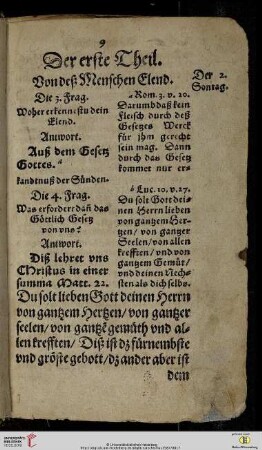 9
Der erste Theil.
Von deß Menschen Elend.
Der 2.
Sontag.
Die 3. Frag.
Woher erkennstu dein
Elend.
Antwort.
Auß dem Gesetz
Gottes. a
a Rom. 3. v. 20.
Darumb daß kein
Fleisch durch deß
Gesetzes Werck
für ihm gerecht
sein mag. Dann
durch das Gesetz
kommet nur er-
kandtnuß der Sünden.
Die 4. Frag.
Was erfordert dañ das
Göttlich Gesetz
von vns?
Antwort.
Diß lehret vns
CHristus in einer
summa Matt. 22.
a Luc. 10. v. 27.
Du solt Gott dei-
nen Herrn lieben
von gantzem Her-
tzen/ von gantzer
Seelen/ von allen
krefften/ vnd von
gantzem Gemüt/
vnd deinen Nech-
sten als dich selbs.
Du solt lieben Gott deinen Herrn
von gantzem Hertzen/ von gantzer
seelen/ von gantzẽ gemüth vnd al-
len krefften/ Diß ist dz fürnembste
vnd gröste gebott/ dz ander aber ist
dem